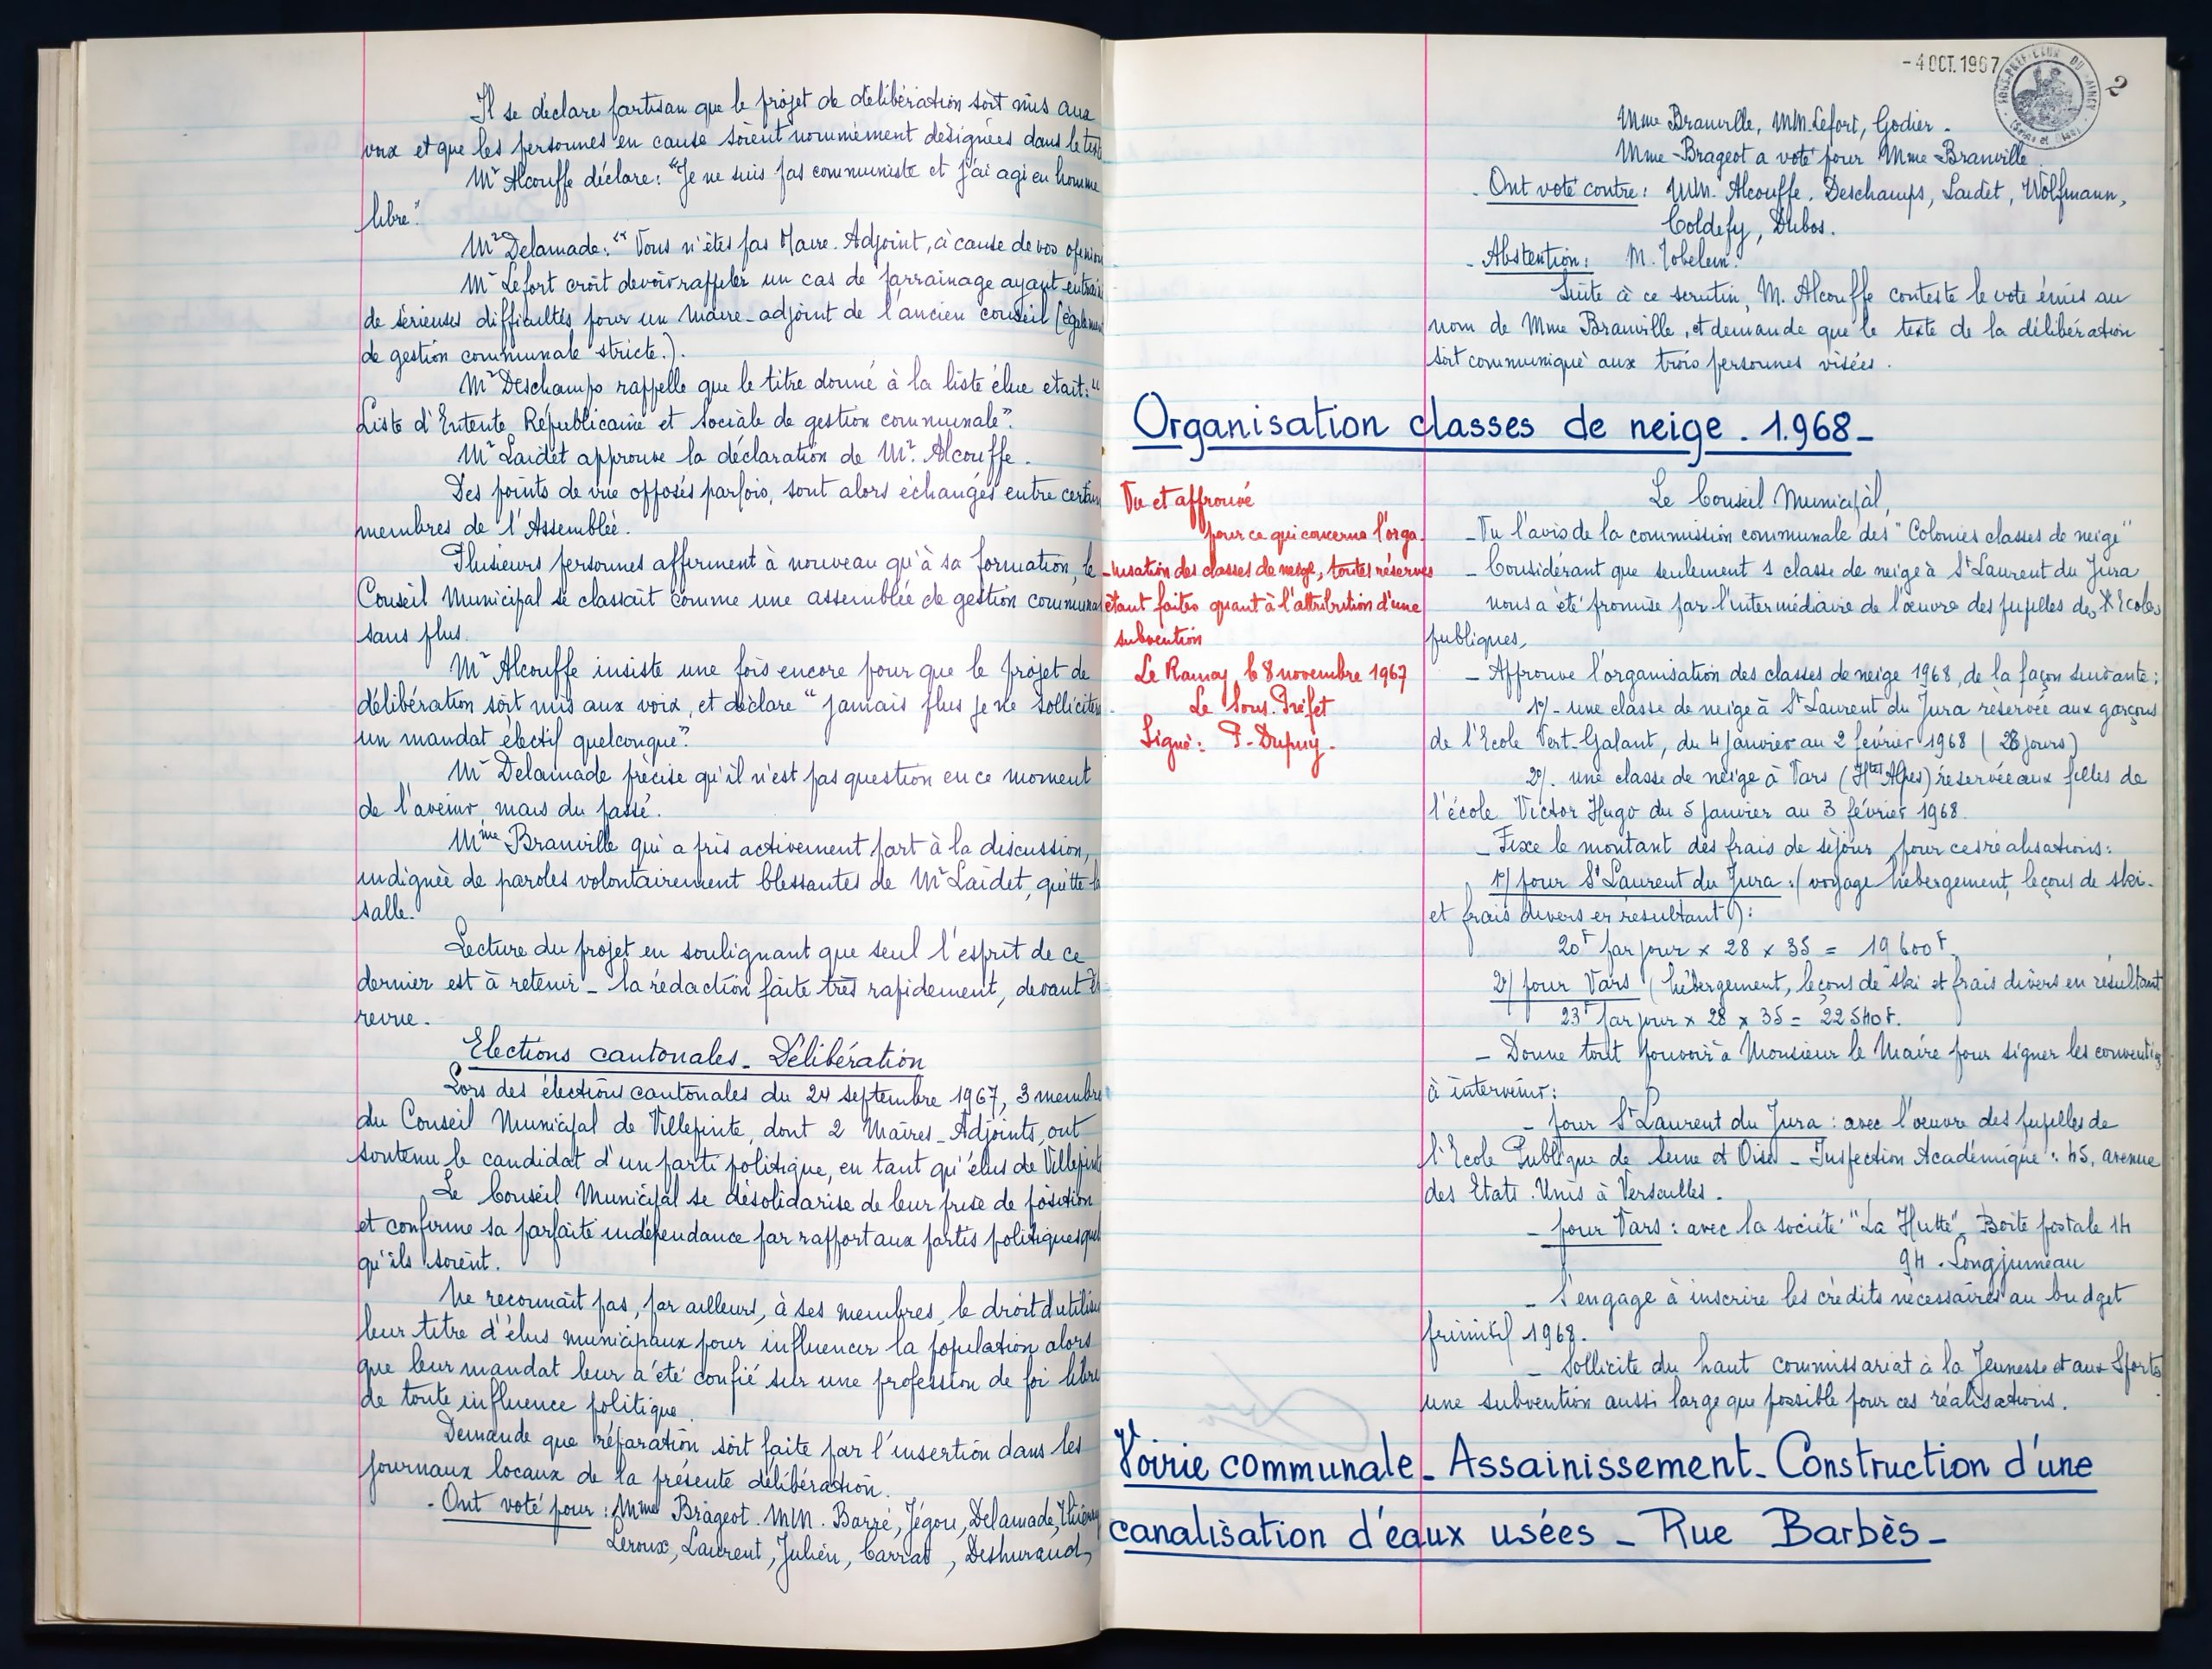 Il se déclare partisan que le projet de délibération soit mis aux
voix et que les personnes en cause soient nommément désignées dans le
Mr Alcouffe déclare: "Je ne suis pas communiste et j'ai agi en homme
libre".
Mr Delamade: "Vous n'êtes pas Maire-Adjoint, à cause de vos
Mr Lefort croit devoir rappeler un cas de parrainage ayant
de sérieuses difficultés pour un maire-adjoint de l'ancien conseil
de gestion communale stricte.).
Mr Deschamps rappelle que le titre donné à la liste élue etait: "
Liste d'Entente Républicaine et sociale de gestion communale".
Mr Laidet approuve la déclaration de Mr. Alcouffe.
Des points de vue opposés parfois, sont alors échangés entre
membres de l'Assemblée.
Plusieurs personnes affirment à nouveau qu'à sa formation, le
Conseil Municipal se classait comme une assemblée de gestion
sans plus.
Mr Alcouffe insiste une fois encore pour que le projet de
délibération soit mis aux voix, et déclare "jamais plus je ne
un mandat électif quelconque".
Mr Delamade précise qu'il n'est pas question en ce moment
de l'avenir, mais du passé.
Mme Branville qui a pris activement part à la discussion,
indignée de paroles volontairement blessantes de Mr Laidet, quitte
salle.
Lecture du projet en soulignant que seul l'esprit de ce
dernier est à retenir - la rédaction faite très rapidement, devant
revue.
Elections cantonales - Délibération
Lors des élections cantonales du 24 septembre 1967, 3
du Conseil Municipal de Villepinte, dont 2 Maires-Adjoints, ont
soutenu le candidat d'un parti politique, en tant qu'élus de
Le Conseil Municipal se désolidarise de leur prise de position
et confirme sa parfaite indépendance par rapport aux partis politiques
qu'ils soient.
Ne reconnait pas, par ailleurs, à ses membres, le droit
leur titre d'élus municipaux pour influencer la population alors
que leur mandat leur a été confié sur une profession de foi libre
de toute influence politique.
Demande que réparation soit faite par l'insertion dans les
journaux locaux de la présente délibération.
- Ont voté pour: Mme Brageot. MM. Barré, Jégou, Delamade,
Leroux, Laurent, Julien,
- 4 OCT. 1967
2
Mme Branville, MM. Lefort, Godier.
Mme Brageot a voté pour Mme Branville
- Ont voté contre: MM. Alcouffe, Deschamps, Laidet, Wolfmann,
Coldefy, Dubos.
- Abstention: M. Tobelem.
Suite à ce scrutin, M. Alcouffe conteste le vote émis au
nom de Mme Branville, et demande que le texte de la délibération
soit communiqué aux trois personnes visées.
Organisation classes de neige. 1.968-
Vu et approuvé
pour ce qui concerne l'orga-
-nisation des classes de neige, toutes réserves
étant faites quant à l'attribution d'une
subvention
Le Raincy le 8 novembre 1967
Le Sous. Préfet
Signé: P. Dupuy.
Le Conseil Municipal,
- Vu l'avis de la commission communale des "Colonies classes de neige"
- Considérant que seulement 1 classe de neige à St Laurent du Jura
nous a été promise par l'intermédiaire de l'œuvre des pupilles des Ecoles
publiques,
- Approuve l'organisation des classes de neige 1968, de la façon suivante:
1°/- une classe de neige à St Laurent du Jura réservée aux garçons
de l'Ecole Vert-Galant, du 4 janvier au 2 février 1968 (28 jours)
2°/. une classe de neige à Vars (Htes Alpes) réservée aux filles de
l'école Victor Hugo du 5 janvier au 3 février 1968.
- Fixe le montant des frais de séjour pour ces réalisations:
1°/ pour St Laurent du Jura: (voyage hébergement, leçons de ski.
et frais divers en résultant):
20F par jour x 28 x 35 = 19 600F.
2°/ pour Vars (hébergement, leçons de ski et frais divers en résultant
23F par jour x 28 x 35 = 22 540F.
- Donne tout pouvoir à Monsieur le Maire pour signer les
à intervenir:
- pour St Laurent du Jura: avec l'œuvre des pupilles de
l'Ecole Publique de Seine et Oise - Inspection Académique: 45, avenue
des Etats. Unis à Versailles.
- pour Vars: avec la société "La Hutte". Boîte postale 14
94. Longjumeau
- S'engage à inscrire les crédits nécessaires au budget
primitif 1968.
- Sollicite du haut commissariat à la Jeunesse et aux Sports
une subvention aussi large que possible pour ces réalisations.
Voirie communale - Assainissement - Construction d'une
canalisation d'eaux usées - Rue Barbès -